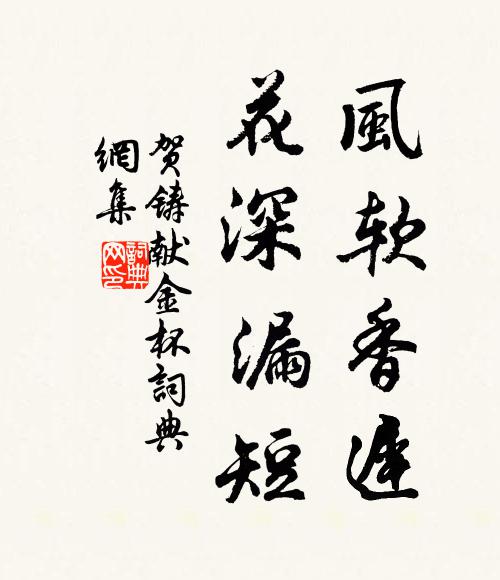 風软香遲
花深漏短
贺鋳献金杯詞典
網集
詞典
网印